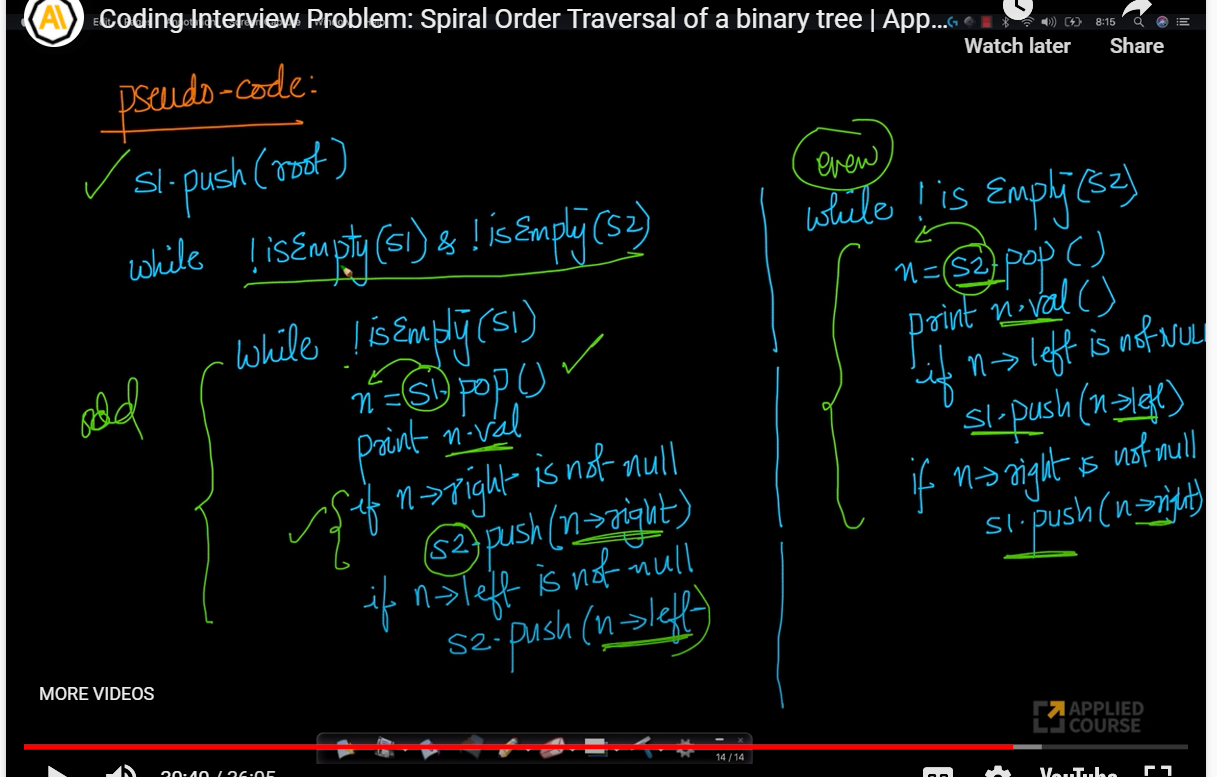 Coding Interview Problem: Spiral Order Traversal of a binary tree | App...
8:15
Watch later
Share
pseudo-code:
S1.push(root)
while !isEmpty(S1) & !isEmpty(S2)
odd
while !isEmpty(S1)
n = S1.pop()
print n.val
if n→right is not null
S2.push(n→right)
if n→left is not null
S2.push(n→left)
even
while !is Empty(S2)
n = S2.pop()
print n.val()
if n→left is not NULL
S1.push(n→left)
if n→right is not null
S1.push(n→right)
MORE VIDEOS
APPLIED
COURSE
14/14
20:40 / 26:05
YouTube